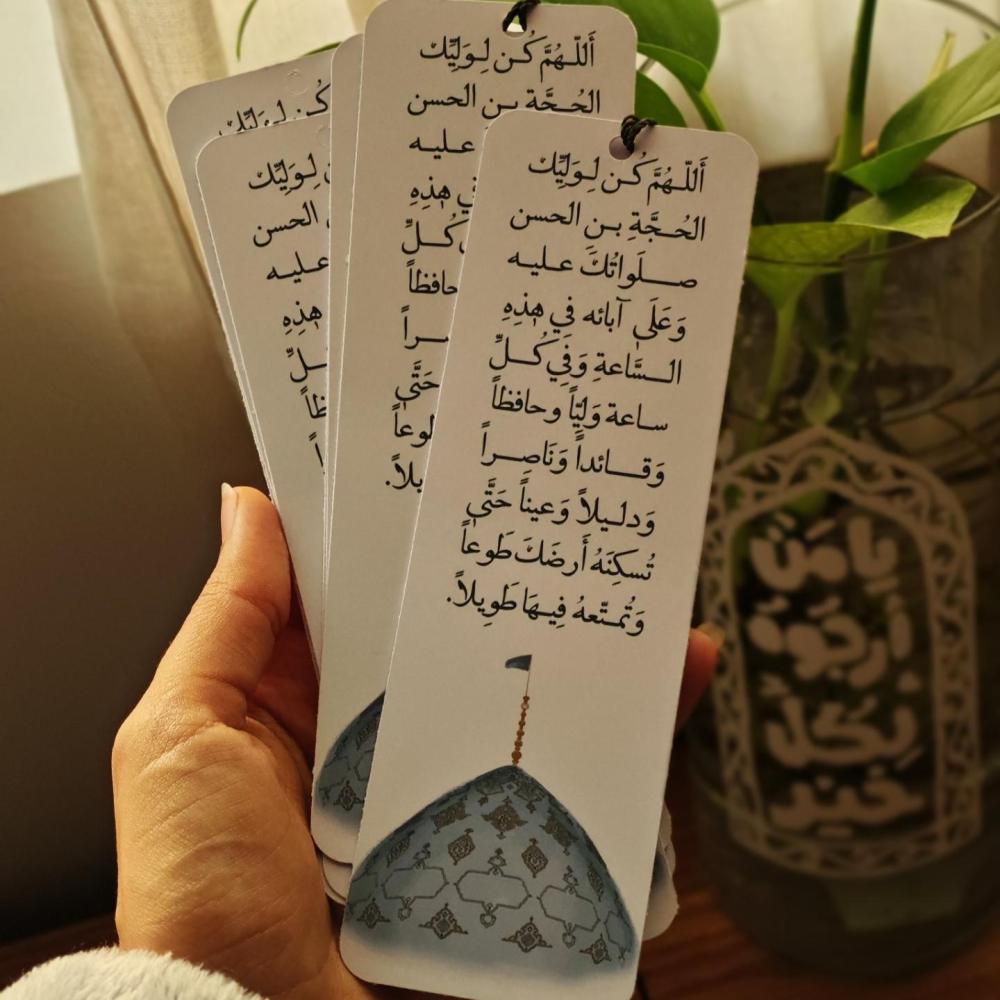 أَللّـهُمَّ كُـن لِـوَلِيِّك
الحُـجَّةِ بـن الحسن
صـلَواتُكَ عـليـه
وَعَلَى آبائه في هٰذِهِ
الـسَّاعةِ وَفِي كُـلِّ
سـاعة وَلِيّاً وحافظاً
وَقـائداً وَنَاصِـراً
وَدلـيلاً وَعيناً حَتَّى
تُسكِنَهُ أَرضَكَ طَوعاً
وَتُمـتّعهُ فِيـهَا طَوِيلاً.
أَللّـهُمَّ كُـن لِـوَلِيِّك
الحُـجَّة بـن الحسن
عـليـه
في هٰذِهِ
كُـلِّ
حافظاً
ـراً
حَتَّى
لِوَلِيِّك
الحسن
عـليـه
هٰذِهِ
يا مَن
أرجوهُ
لِكُلِّ
خَير